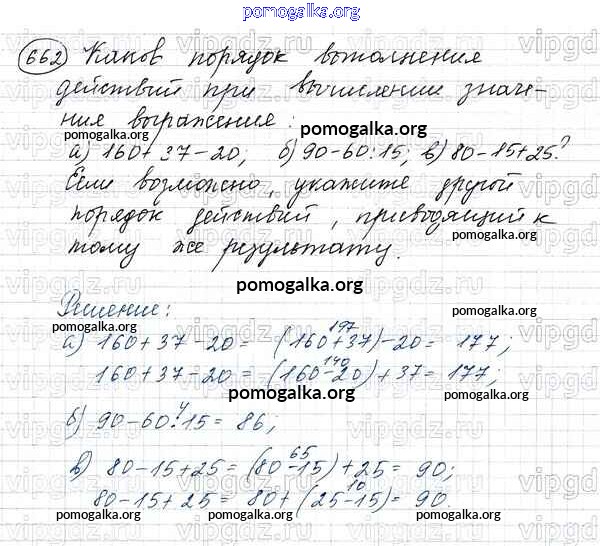 pomogalka.org
662 Каков порядок выполнения
действий при вычислении значе-
ния выражения:
pomogalka.org
а) 160+37-20; б) 90-60:15; в) 80-15+25?
Если возможно, укажите другой
порядок действий, приводящий к
pomogalka.org
тому же результату.
pomogalka.org
Решение:
pomogalka.org
197
а) 160+37-20 = (160+37)-20 = 177;
140
160+37-20 = (160-20)+37 = 177;
pomogalka.org
4
б) 90-60:15 = 86;
65
в) 80-15+25 = (80-15)+25 = 90;
10
80-15+25 = 80+(25-15) = 90.
pomogalka.org pomogalka.org pomogalka.org
vipgdz.ru